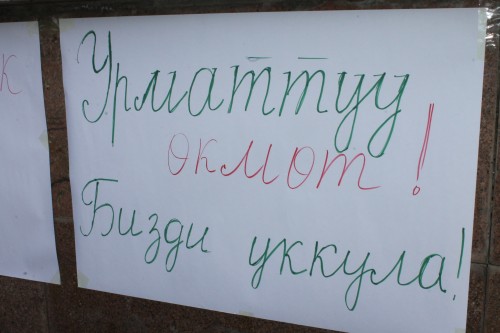 Урматтуу
окмот!
Бизди уккула!
к